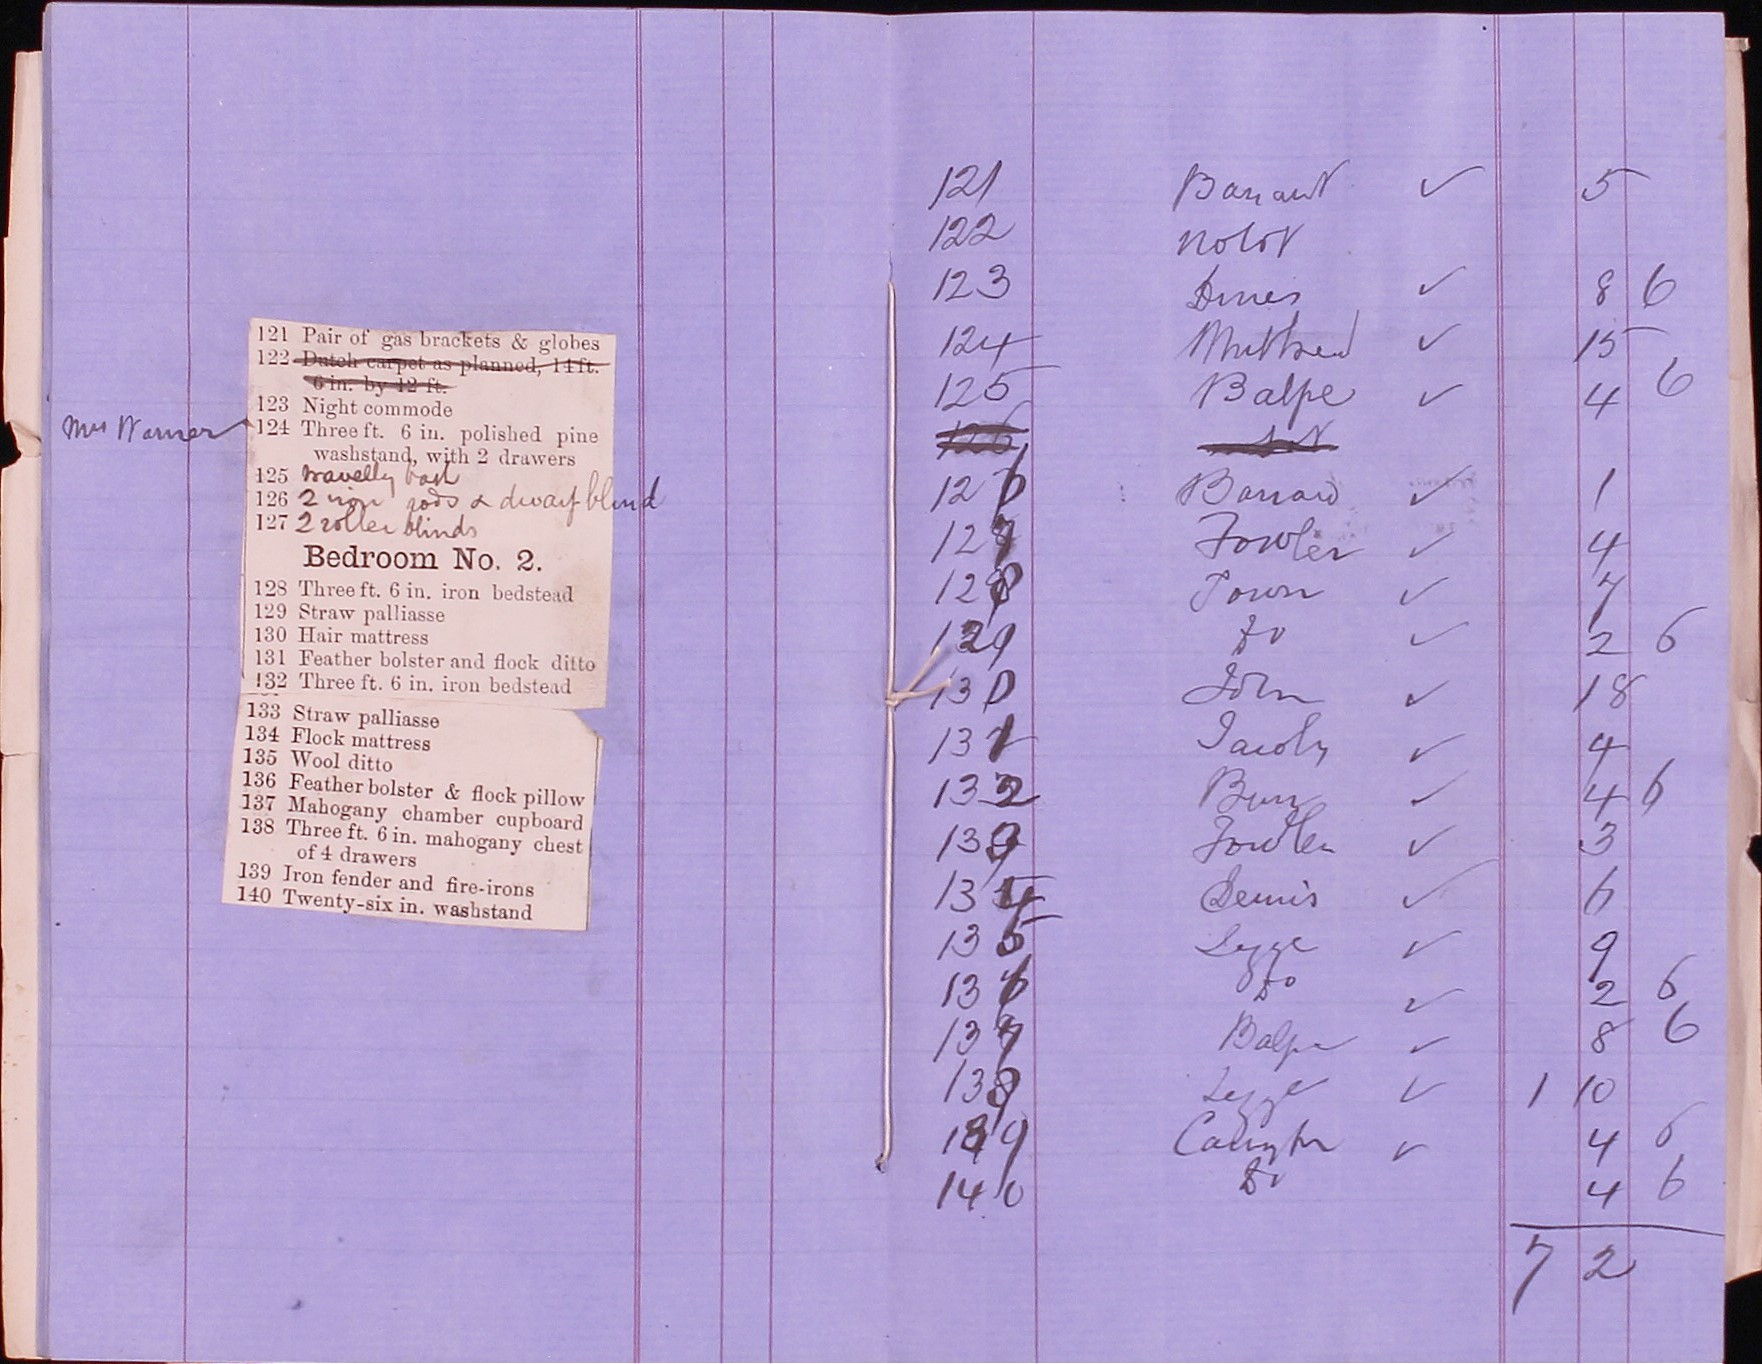 121 Pair of gas brackets & globes
122 Dutch carpet as planned, 14 ft.
6 in. by 12 ft.
123 Night commode
Mrs Warner 124 Three ft. 6 in. polished pine
washstand, with 2 drawers
125 travellg bath
126 2 iron rods & dwarf blind
127 2 roller blinds
Bedroom No. 2.
128 Three ft. 6 in. iron bedstead
129 Straw palliasse
130 Hair mattress
131 Feather bolster and flock ditto
132 Three ft. 6 in. iron bedstead
133 Straw palliasse
134 Flock mattress
135 Wool ditto
136 Feather bolster & flock pillow
137 Mahogany chamber cupboard
138 Three ft. 6 in. mahogany chest
of 4 drawers
139 Iron fender and fire-irons
140 Twenty-six in. washstand
121 ✓ 5
122 no lot
123 ✓ 8 6
124 ✓ 15
125 Balpe ✓ 4 6
126
126 Barnard ✓ 1
127 Fowler ✓ 4
128 Town ✓ 7
129 Do ✓ 2 6
130 John ✓ 18
131 Jacoby ✓ 4
132 ✓ 4 6
133 Fowler ✓ 3
134 Dennis ✓ 6
135 Legge ✓ 9
136 Do ✓ 2 6
137 Balpe ✓ 8 6
138 Legge ✓ 1 10
139 ✓ 4 6
140 Do 4 6
7 2